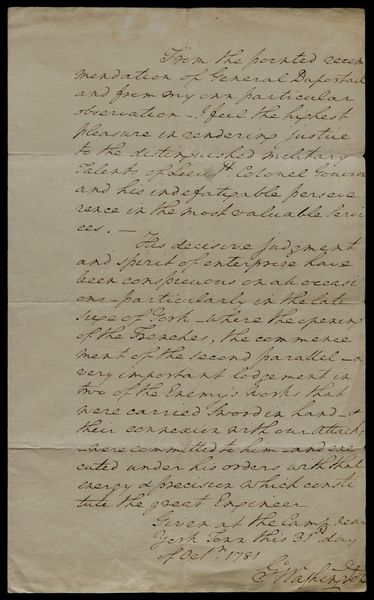 From the pointed recom
mendation of General Duportail
and from my own particular
observation - I feel the highest
pleasure in rendering justice
to the distinguished military
Talents of Lieut Colonel Gouvion
and his indefatigable perseve
rence in the most valuable Servi
ces. —
His decisive Judgment
and spirit of enterprise have
been conspicuous on all occasi
ons - particularly in the late
Siege of York - where the opening
of the Trenches, the commence
ment of the second parallel - a
very important lodgement in
two of the Enemy's Works that
were carried Sword in hand - &
their connexion with our attacks
- were committed to him - and exe
cuted under his orders with that
energy & precision which consti
tute the great Engineer
Given at the Camp near
York Town this 31st day
of Octr. 1781
G Washington